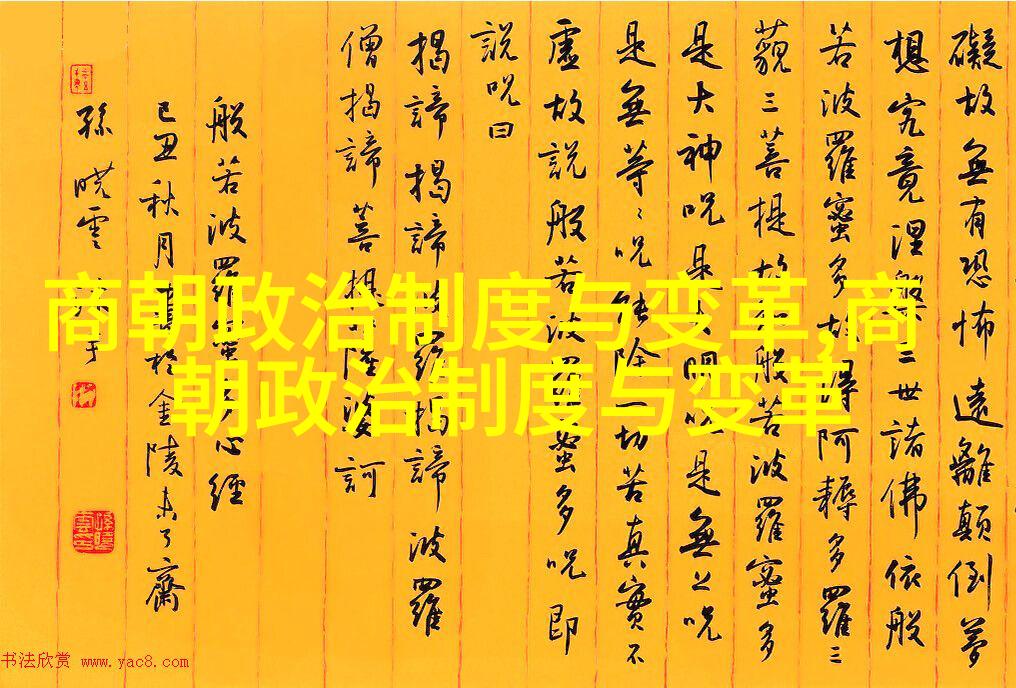 商朝政治制度与变革,商
朝政治制度与变革
礙故無有恐怖遠離顛倒夢
想究竟涅槃三世諸佛依般
若波羅蜜多故得阿耨多羅三
藐三菩提故知般若波羅蜜多
是大神呪是大明呪是無上呪
是無等〻呪能除一切苦真實不
虛故説般若波羅蜜多呪即
説呪曰
揭諦揭諦波羅揭諦波羅
僧揭諦菩提薩婆訶
般若波羅蜜多心經
己丑秋月書於金陵未了齋
孫曉雲
书法欣赏 www.yac8.com